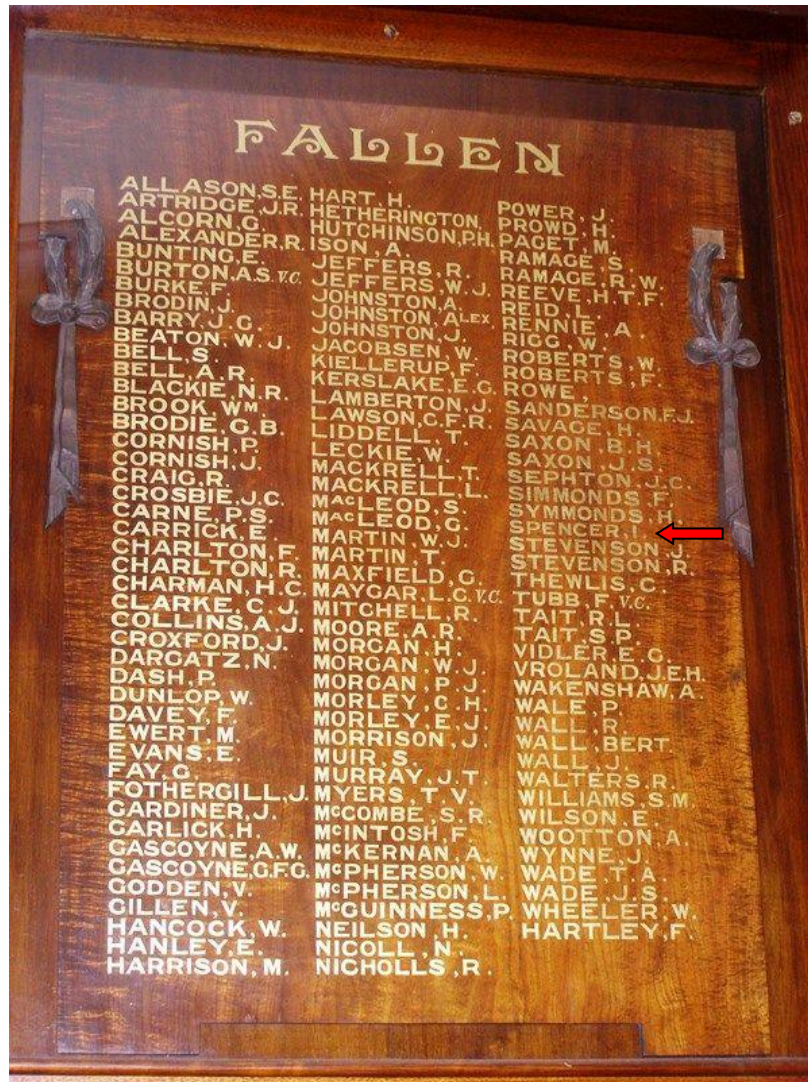 FALLEN
ALLASON, S.E.
ARTRIDGE, J.R.
ALCORN, G.
ALEXANDER, R.
BUNTING, E.
BURTON, A.S. V.C.
BURKE, F.
BRODIN, J.
BARRY, J. G.
BEATON, W. J.
BELL, S.
BELL, A. R.
BLACKIE, N. R.
BROOK, WM.
BRODIE, G. B.
CORNISH, P.
CORNISH, J.
CRAIG, R.
CROSBIE, J.C.
CARNE, P.S.
CARRICK, E.
CHARLTON, F.
CHARLTON, R.
CHARMAN, H.C.
CLARKE, C. J.
COLLINS, A. J.
CROXFORD, J.
DARGATZ, N.
DASH, P.
DUNLOP, W.
DAVEY, F.
EWERT, M.
EVANS, E.
FAY, G.
FOTHERGILL, J.
GARDINER, J.
GARLICK, H.
GASCOYNE, A.W.
GASCOYNE, G.F.G.
GODDEN, V.
GILLEN, V.
HANCOCK, W.
HANLEY, E.
HARRISON, M.
HART, H.
HETHERINGTON,
HUTCHINSON, P.H.
ISON, A.
JEFFERS, R.
JEFFERS, W. J.
JOHNSTON, A.
JOHNSTON, ALEX.
JOHNSTON, J.
JACOBSEN, W.
KIELLERUP, F.
KERSLAKE, E. G.
LAMBERTON, J.
LAWSON, C.F.R.
LIDDELL, T.
LECKIE, W.
MACKRELL, T.
MACKRELL, L.
MACLEOD, S.
MACLEOD, G.
MARTIN W. J.
MARTIN, T.
MAXFIELD, G.
MAYGAR, L.C. V.C.
MITCHELL, R.
MOORE, A. R.
MORGAN, H.
MORGAN, W. J.
MORGAN, P. J.
MORLEY, C. H.
MORLEY, E. J.
MORRISON, J.
MUIR, S.
MURRAY, J. T.
MYERS, T. V.
MCCOMBE, S. R.
MCINTOSH, F.
MCKERNAN, A.
MCPHERSON, W.
MCPHERSON, L.
MCGUINNESS, P.
NEILSON, H.
NICOLL, N.
NICHOLLS, R.
POWER, J.
PROWD, H.
PAGET, M.
RAMAGE, S.
RAMAGE, R. W.
REEVE, H. T. F.
REID, L.
RENNIE, A.
RIGG, W.
ROBERTS, W.
ROBERTS, F.
ROWE,
SANDERSON, F.J.
SAVAGE, H.
SAXON, B. H.
SAXON, J. S.
SEPHTON, J. C.
SIMMONDS, F.
SYMMONDS, H.
SPENCER, I.
STEVENSON, J.
STEVENSON, R.
THEWLIS, C.
TUBB, F. V.C.
TAIT, R. L.
TAIT, S. P.
VIDLER, E. G.
VROLAND, J.E.H.
WAKENSHAW, A.
WALE, P.
WALL, R.
WALL, BERT.
WALL, J.
WALTERS, R.
WILLIAMS, S. M.
WILSON, E.
WOOTTON, A.
WYNNE, J.
WADE, T. A.
WADE, J. S.
WHEELER, W.
HARTLEY, F.